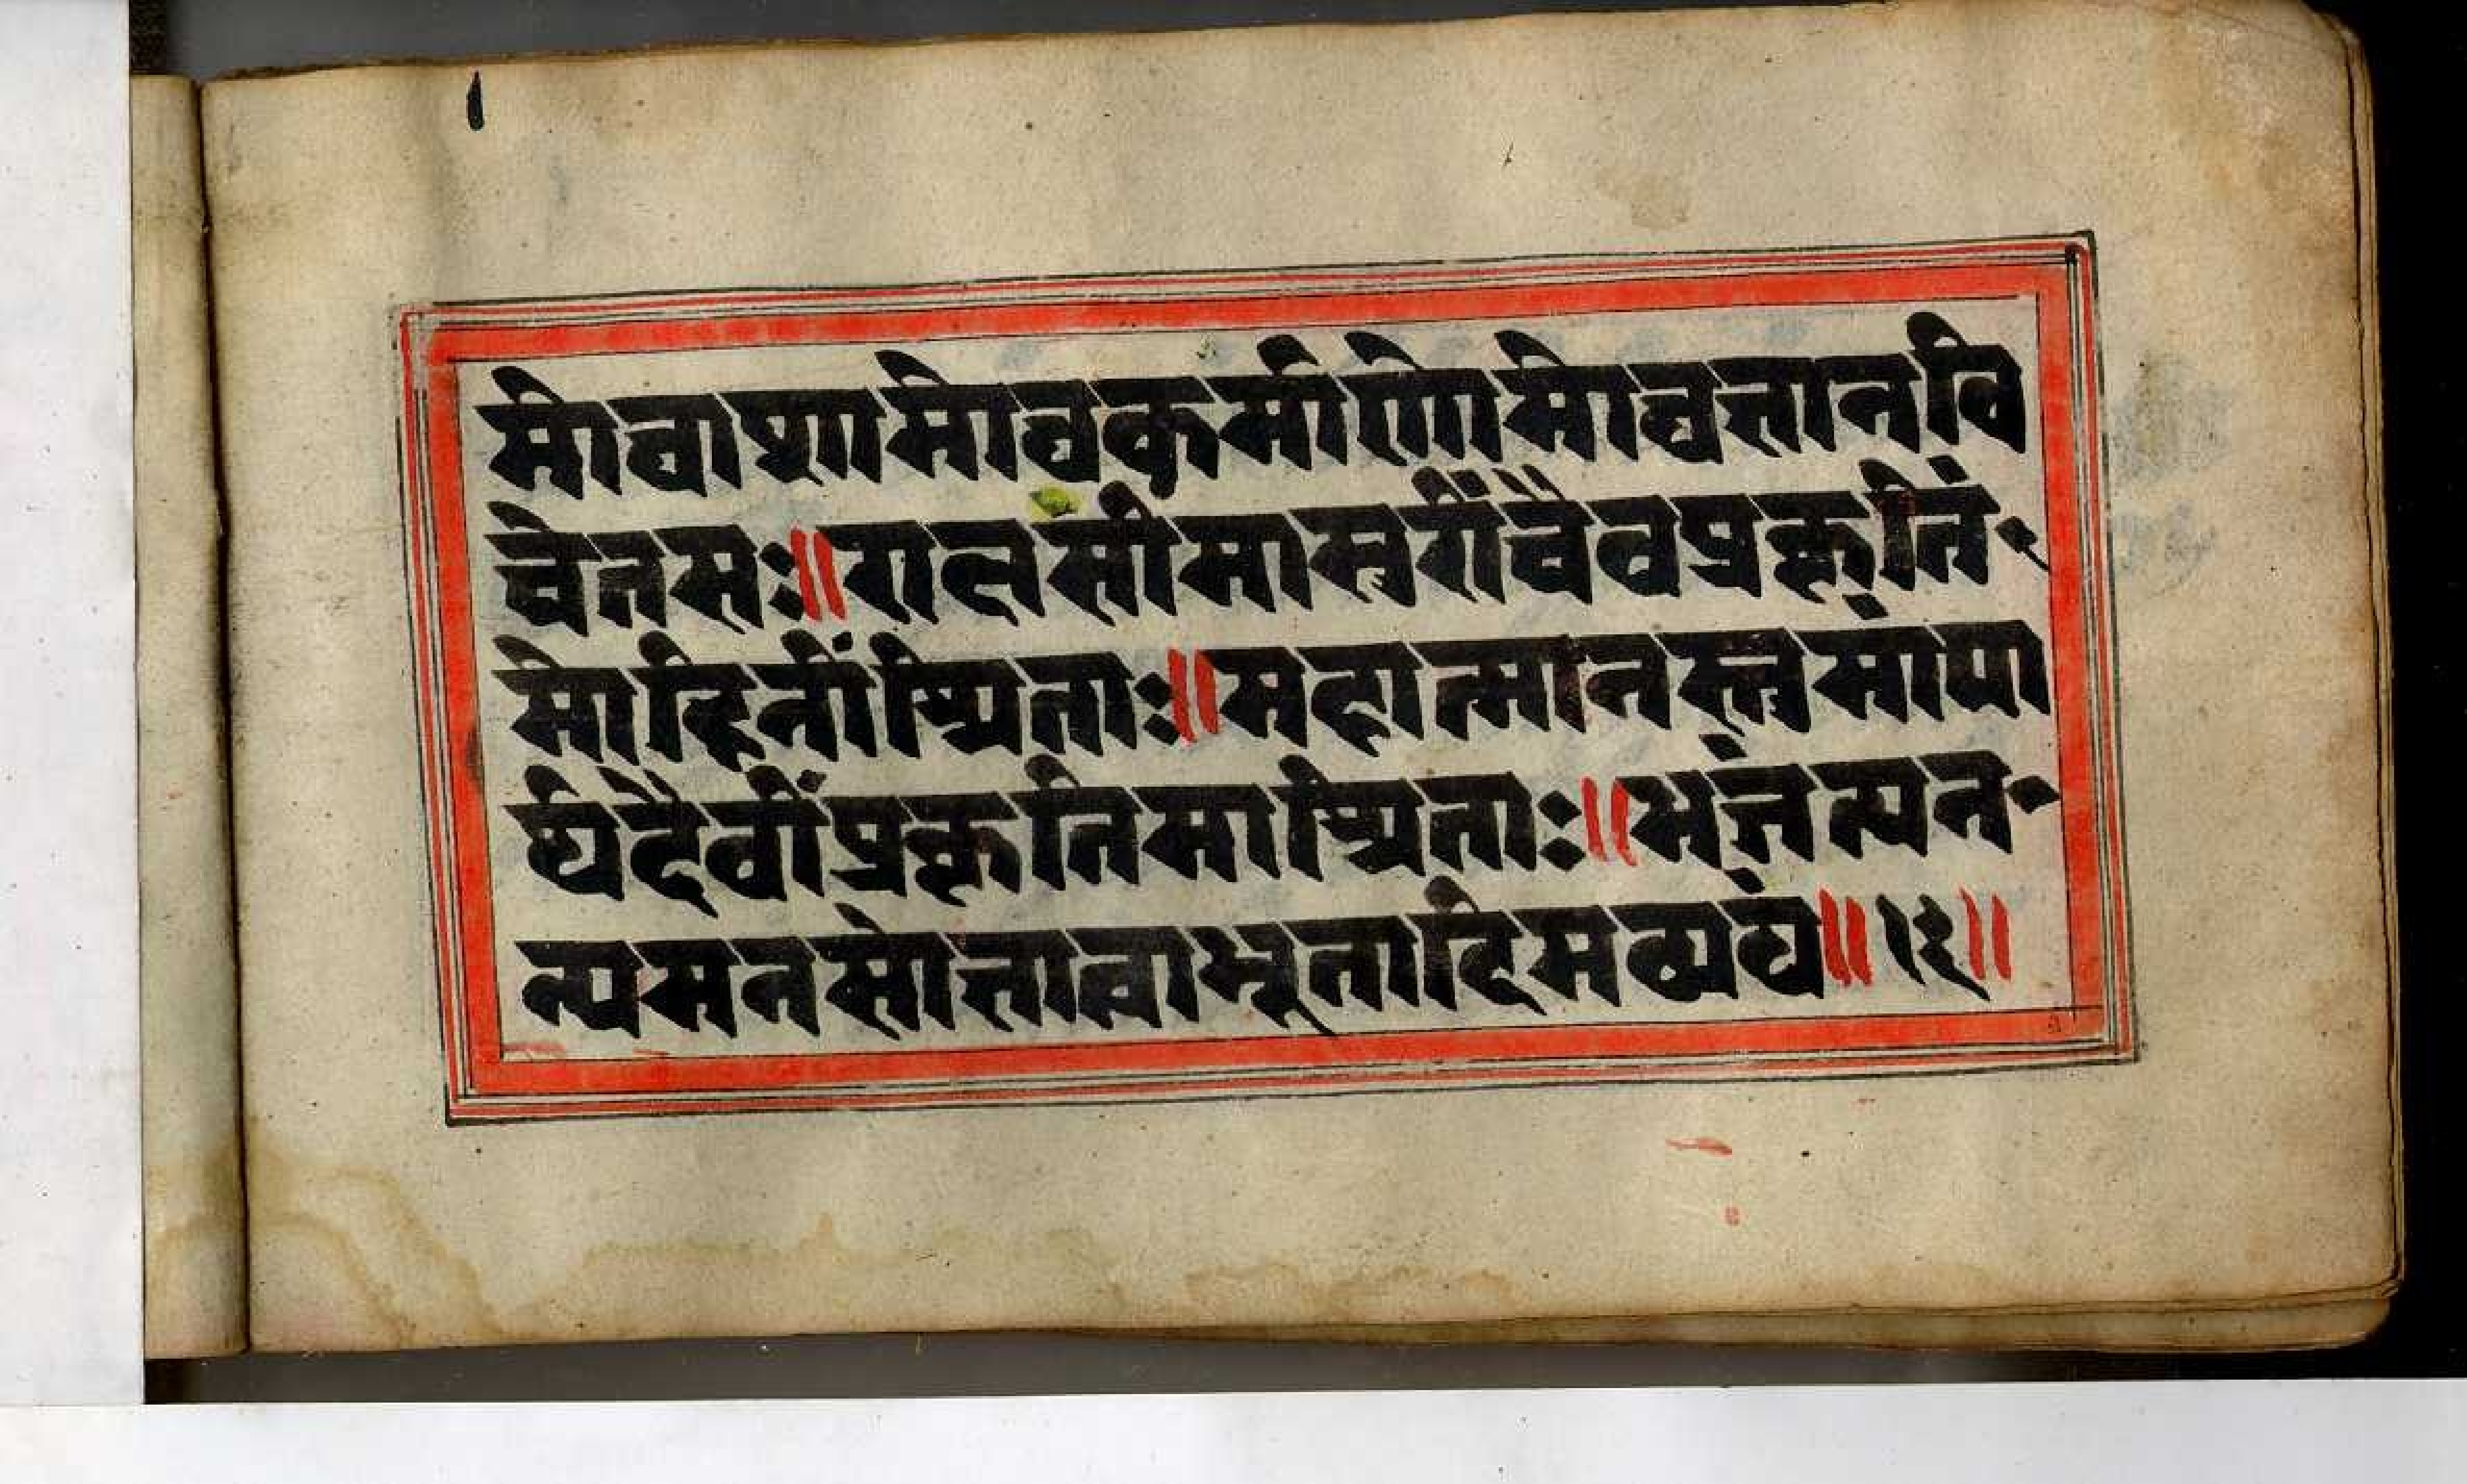 मोघाशामोघकर्माणोमोघज्ञानवि
चेतसः॥राक्षसीमासुरीँचैवप्रकृतिं
मोहिनींश्रिताः॥महात्मानस्तुमांपा
र्थदैवींप्रकृतिमाश्रिताः॥भजंत्यन
न्यमनसोज्ञात्वाभूतादिमव्ययं॥१३॥